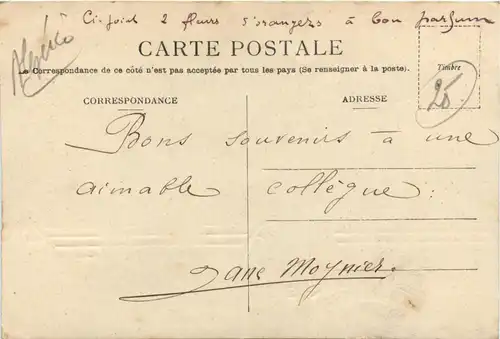 Ci-joint 2 fleurs d'orangers à bon parfum
CARTE POSTALE
La Correspondance de ce côté n'est pas acceptée par tous les pays (Se renseigner à la poste).
Timbre
25
CORRESPONDANCE
ADRESSE
Bons souvenirs à une
aimable collègue:
Jane Moynier.